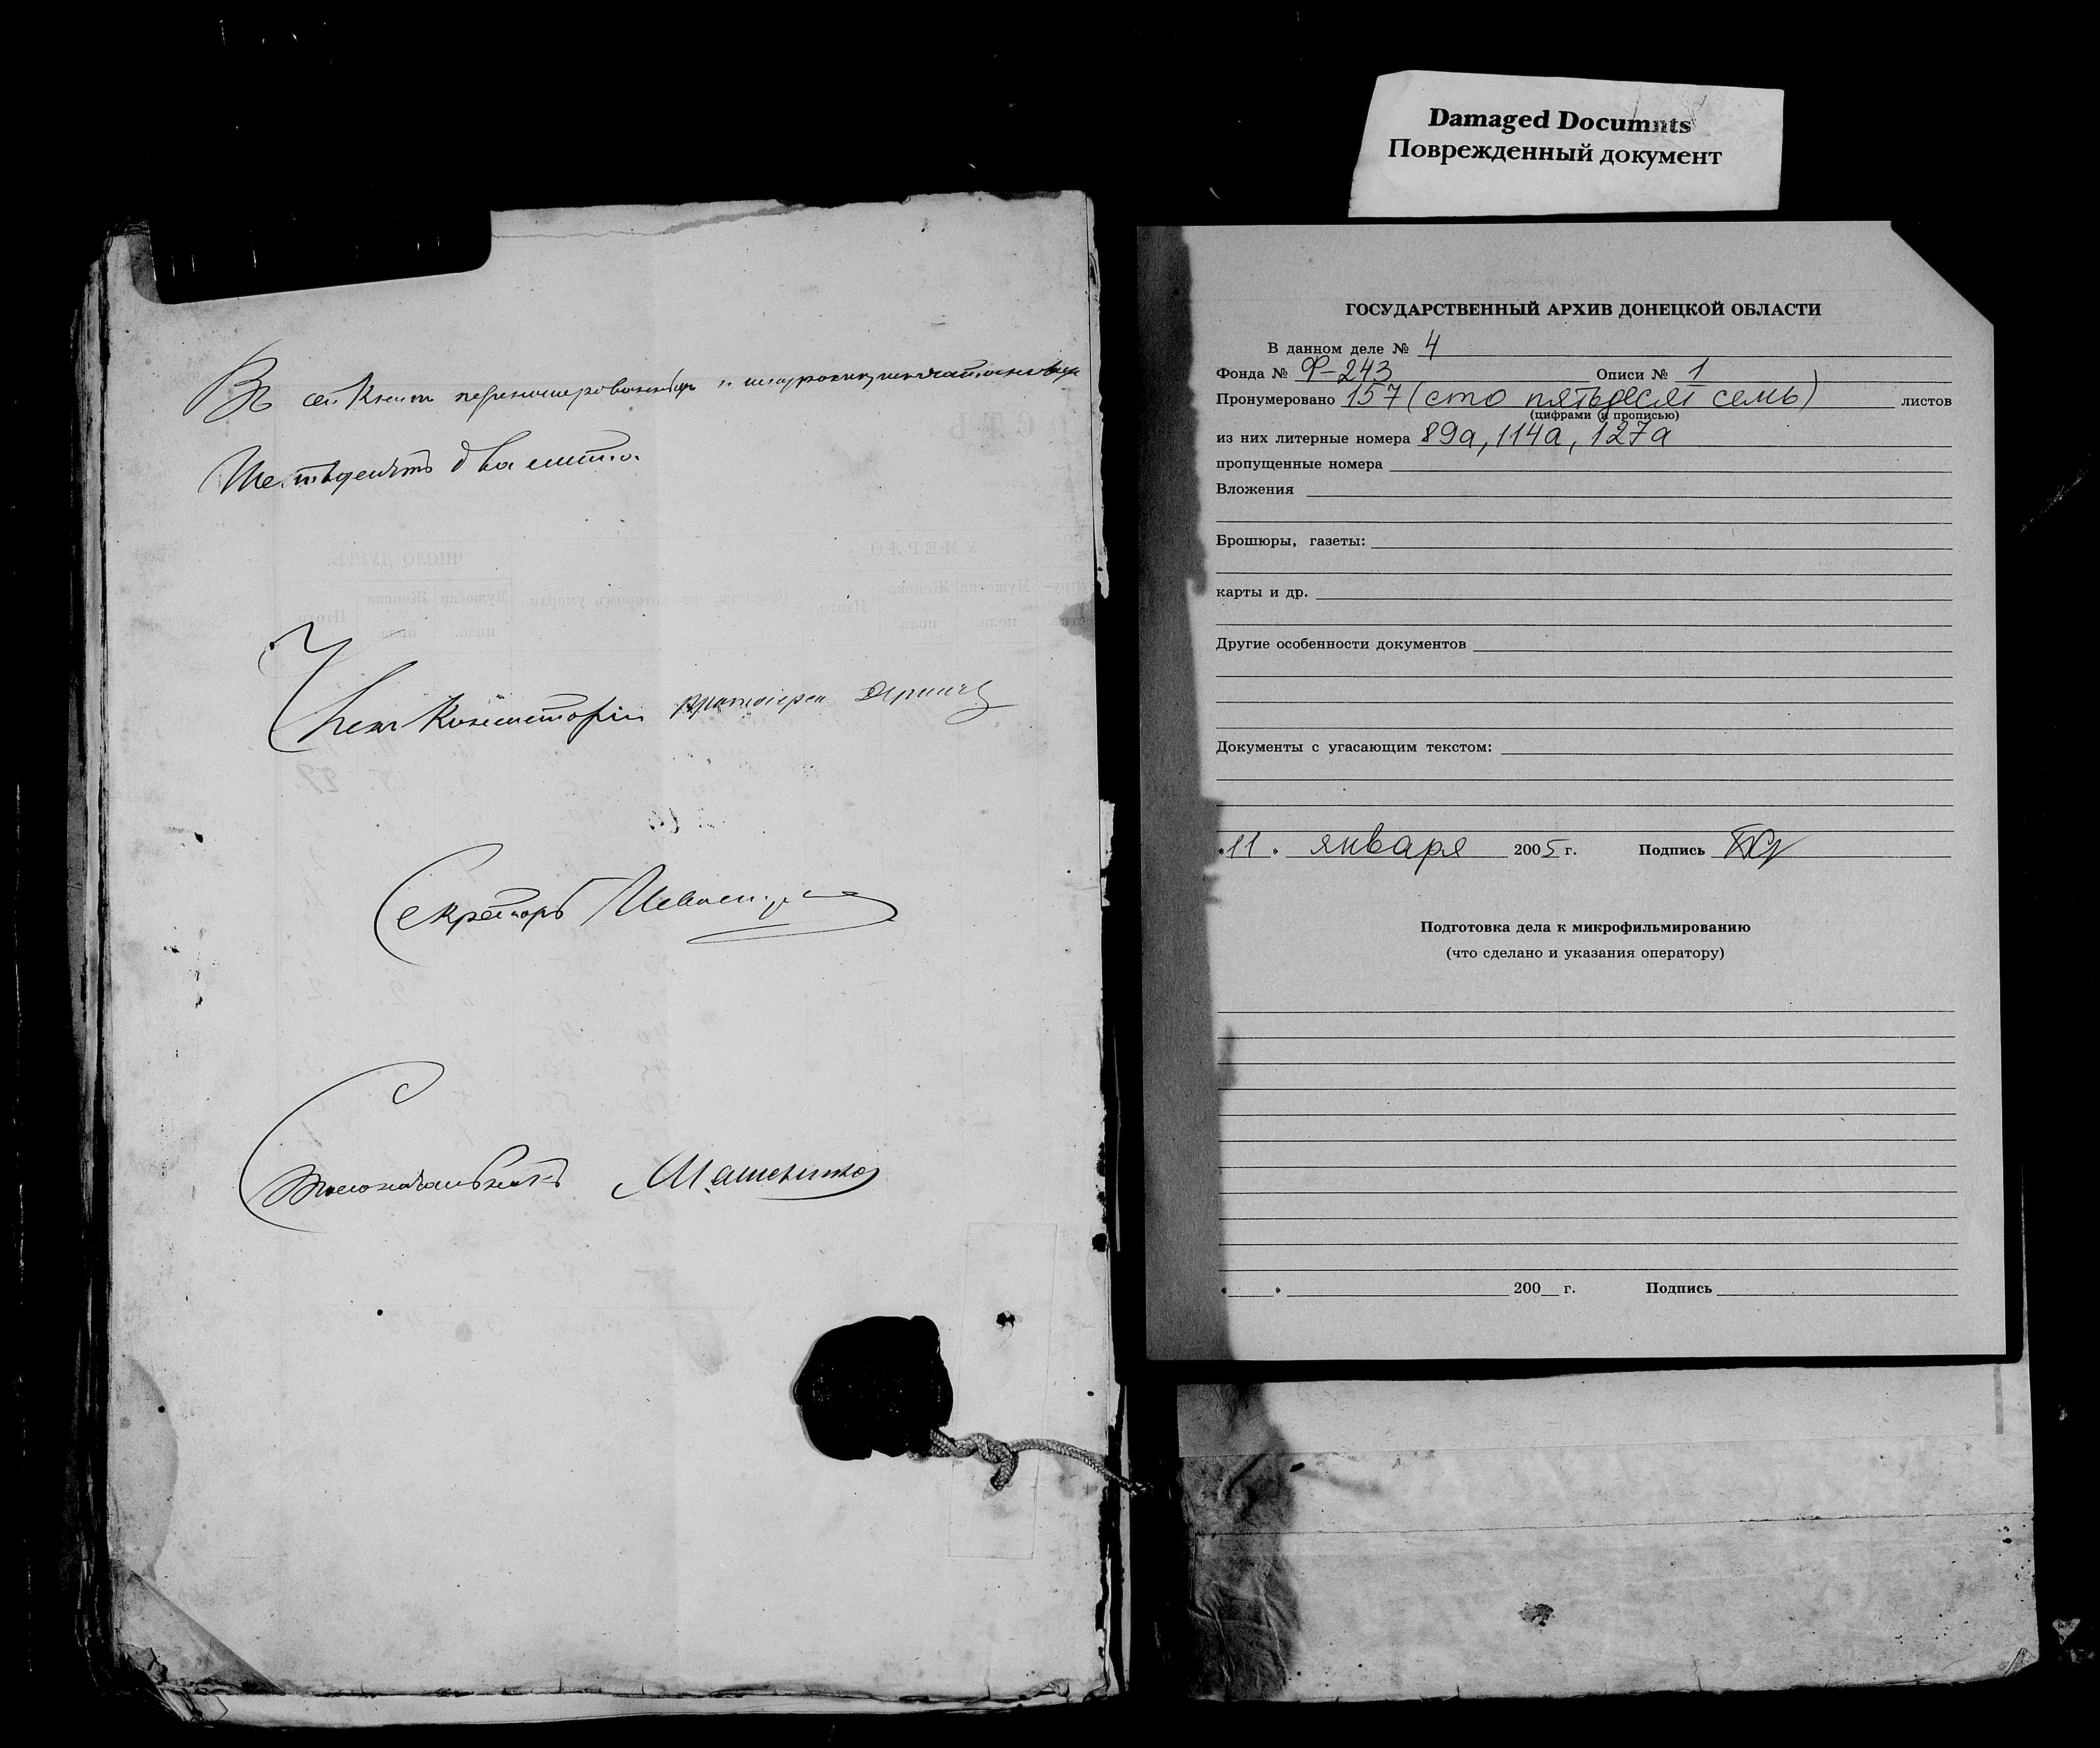 Damaged Documnts
Поврежденный документ
Въ сей Книгѣ перенумерованныхъ и
Шестьдесятъ два листа.
Членъ Консисторіи протоіерей
Секретарь
Столоначальникъ
ГОСУДАРСТВЕННЫЙ АРХИВ ДОНЕЦКОЙ ОБЛАСТИ
В данном деле № 4
Фонда № Ф-243 Описи № 1
Пронумеровано 157 (сто пятьдесят семь) листов
(цифрами и прописью)
из них литерные номера 89а, 114а, 127а
пропущенные номера
Вложения
Брошюры, газеты:
карты и др.
Другие особенности документов
Документы с угасающим текстом:
«11» января 2005 г. Подпись
Подготовка дела к микрофильмированию
(что сделано и указания оператору)
« » 200 г. Подпись